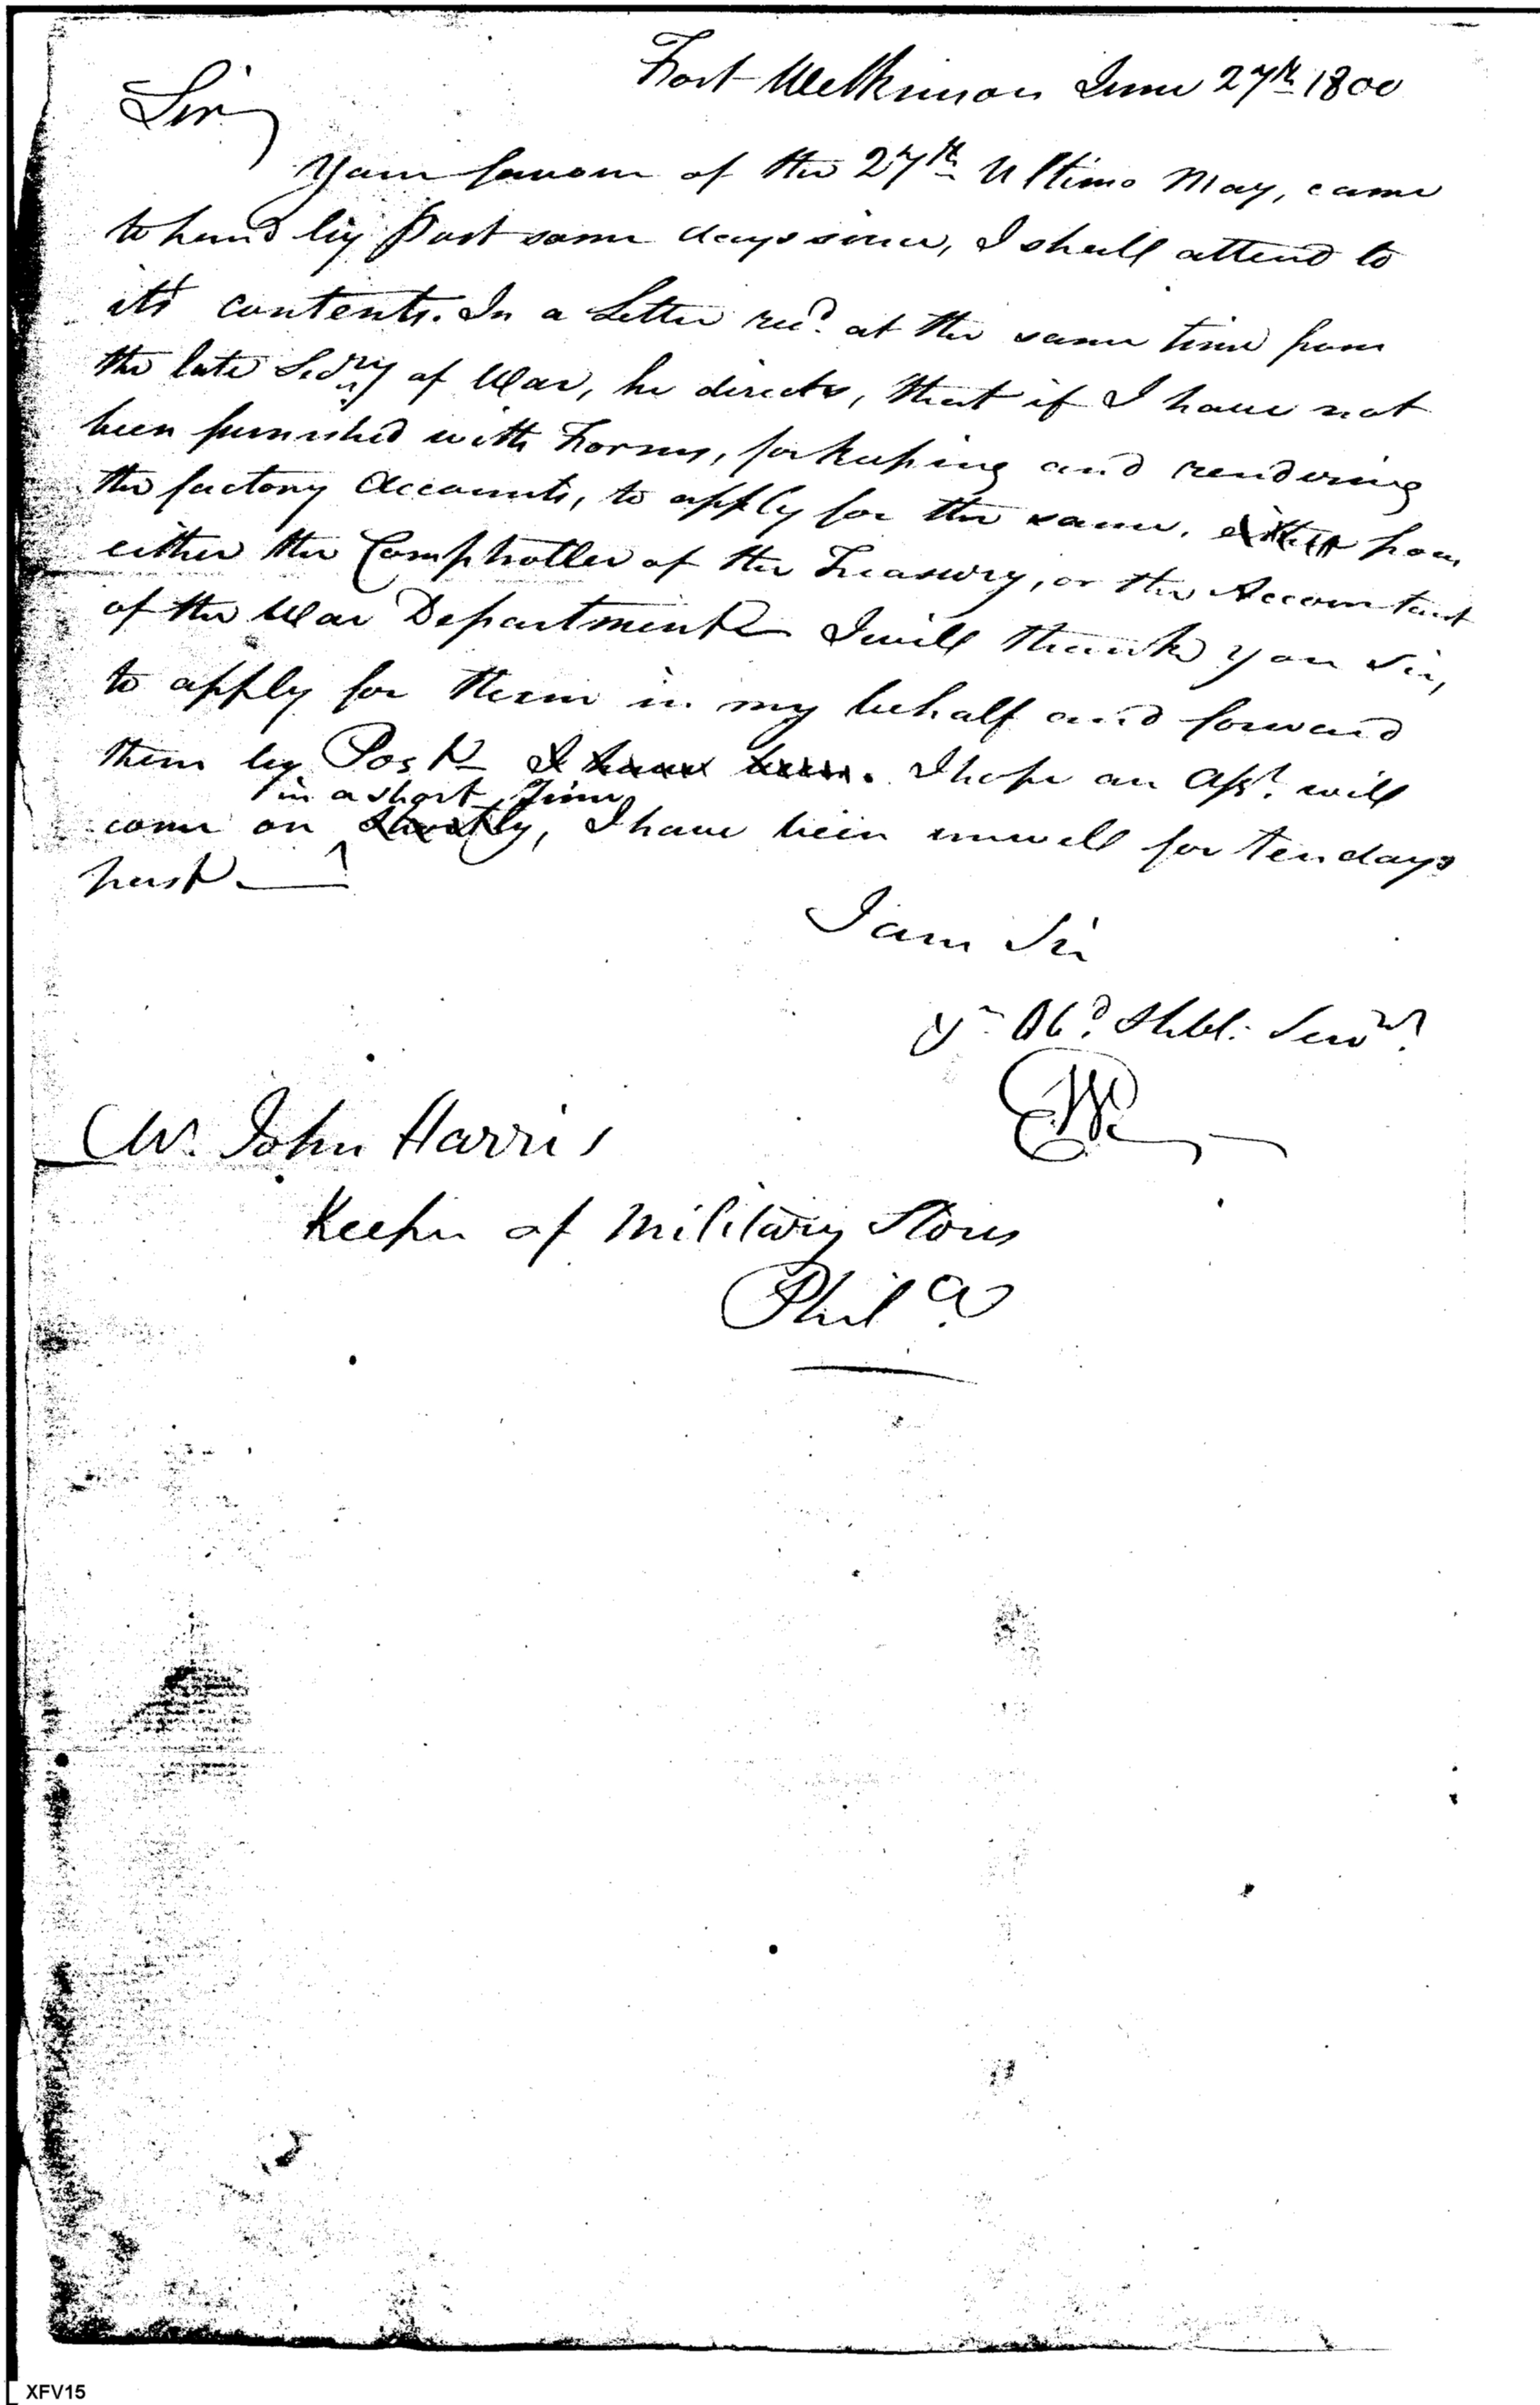 Fort Wilkinson June 27th 1800
Sir
Your favour of the 27th Ultimo May, came
to hand by Post some days since, I shall attend to
it's contents. In a Letter recd. at the same time from
the late Secry of War, he directs, that if I have not
been furnished with Forms, for keeping and rendering
the factory Accounts, to apply for the same, either from
either the Comptroller of the Treasury, or the Accountant
of the War Department I will thank you Sir,
to apply for them in my behalf and forward
them by Post I have been. I hope an Asst. will
in a short Time
come on shortly, I have been unwell for ten days
past
I am Sir
yr Obd. Hbl: Servt.
Mr. John Harris
Keeper of Military Stores
Phila.
XFV15